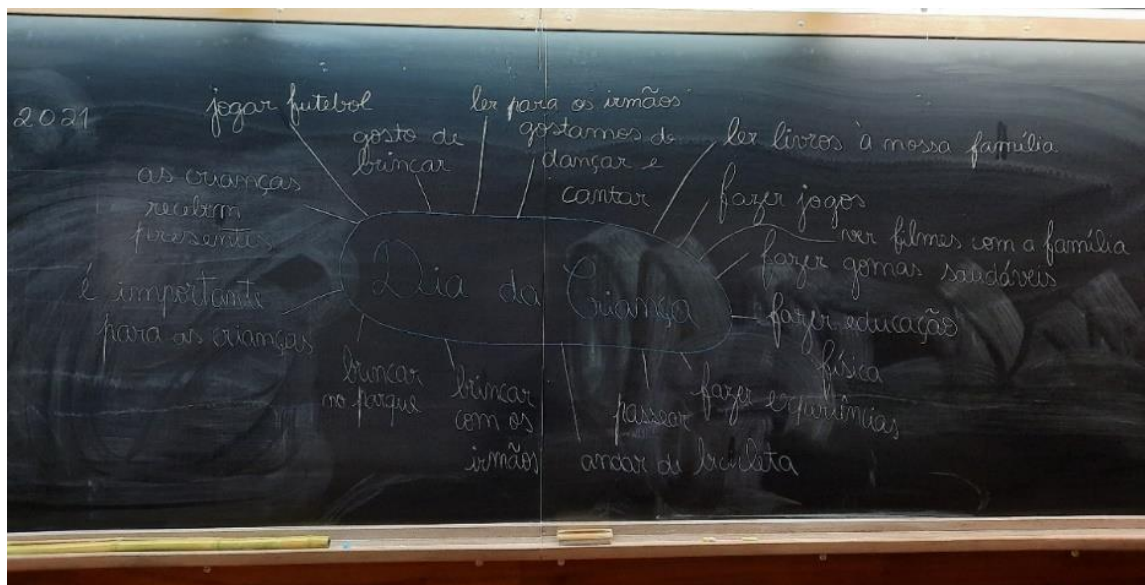 2021
jogar futebol
gosto de
brincar
ler para os irmãos
gostamos de
dançar e
cantar
ler livros à nossa família
fazer jogos
ver filmes com a família
fazer gomas saudáveis
fazer educação
física
fazer experiências
passear
andar de bicicleta
brincar
com os
irmãos
brincar
no parque
é importante
para as crianças
as crianças
recebem
presentes
Dia da Criança